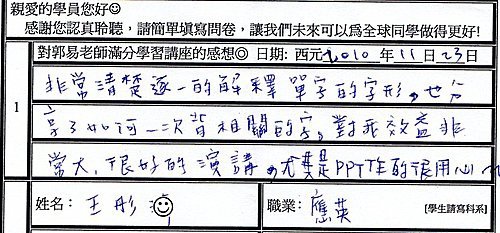 親愛的學員您好☺
感謝您認真聆聽，請簡單填寫問卷，讓我們未來可以為全球同學做得更好!
對郭易老師滿分學習講座的感想◎ 日期: 西元 2010 年 11 日 23 日
1
非常清楚逐一的解釋單字的字形，也分
享了如何一次背相關的字。對我效益非
常大，很好的演講，尤其是PPT作的很用心~
姓名: 王彤 ☺
職業: 應英 [學生請寫科系]